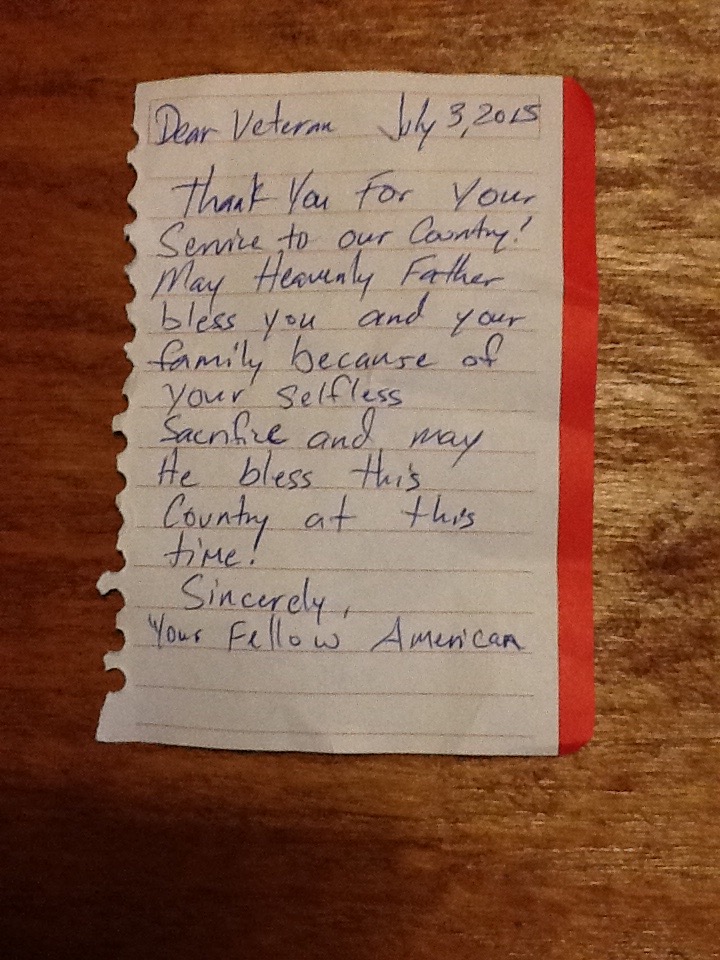 Dear Veteran July 3, 2015
Thank You For Your
Service to our Country!
May Heavenly Father
bless you and your
family because of
your selfless
Sacrifice and may
He bless this
Country at this
time!
Sincerely,
Your Fellow American